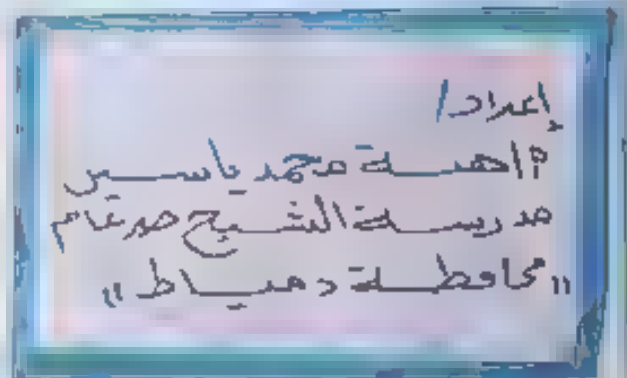 إعداد/
أ/هبة محمد ياسين
مدرسة الشيخ ضرغام
"محافظة دمياط"